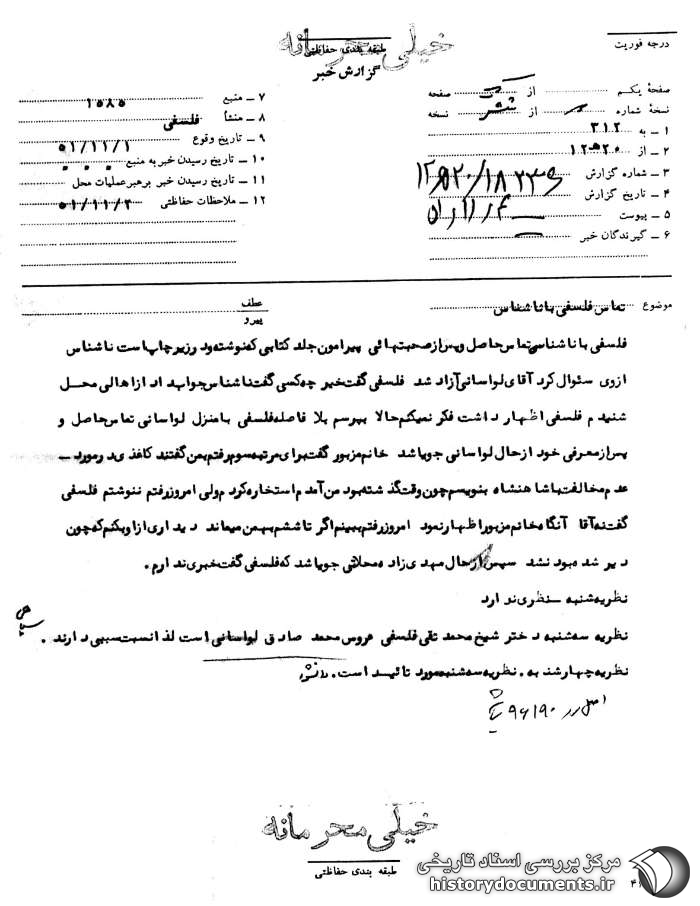 درجه فوریت
خیلی محرمانه
طبقه بندی حفاظتی
گزارش خبر
صفحهٔ یکم از یک صفحه
نسخهٔ شماره از شش نسخه
۱ – به ۳۱۲
۲ – از ۱۲ه۲۰
۳ – شماره گزارش
۴ – تاریخ گزارش
۵ – پیوست
۶ – گیرندگان خبر
۷ – منبع ۱۵۸۵
۸ – منشأ فلسفی
۹ – تاریخ وقوع ۵۱/۱۱/۱
۱۰ – تاریخ رسیدن خبر به منبع
۱۱ – تاریخ رسیدن خبر برهبر عملیات محل
۱۲ – ملاحظات حفاظتی ۵۱/۱۱/۲
موضوع تماس فلسفی با ناشناس
عطف
پیرو
فلسفی با ناشناسی تماس حاصل و پس از صحبتهائی پیرامون جلد کتابی که نوشته و در زیر چاپ است ناشناس
از وی سئوال کرد آقای لواسانی آزاد شد فلسفی گفت خیر چه کسی گفت ناشناس جوابداد از اهالی محل
شنیدم فلسفی اظهار داشت فکر نمیکنم حالا بپرسم بلا فاصله فلسفی با منزل لواسانی تماس حاصل و
پس از معرفی خود از حال لواسانی جویا شد خانم مزبور گفت برای مرتبه سوم رفتم بمن گفتند کاغذی در مورد –
عدم مخالفت با شاهنشاه بنویسم چون وقت گذشته بود من آمدم استخاره کردم ولی امروز رفتم ننوشتم فلسفی
گفت نه آقا آنگاه خانم مزبور اظهار نمود امروز رفتم ببینم اگر تا ششم بهمن میماند دیداری از او بکنم که چون
دیر شده بود نشد سپس از حال مهدی زاده محلاتی جویا شد که فلسفی گفت خبری ندارم.
نظریه شنبه – نظری ندارد
نظریه سه شنبه دختر شیخ محمد تقی فلسفی عروس محمد صادق لواسانی است لذا نسبت سببی دارند.
نظریه چهارشنبه. نظریه سه شنبه مورد تائید است. دانش
اصل در ۹۶۱۹۰
خیلی محرمانه
طبقه بندی حفاظتی
مرکز بررسی اسناد تاریخی
historydocuments.ir